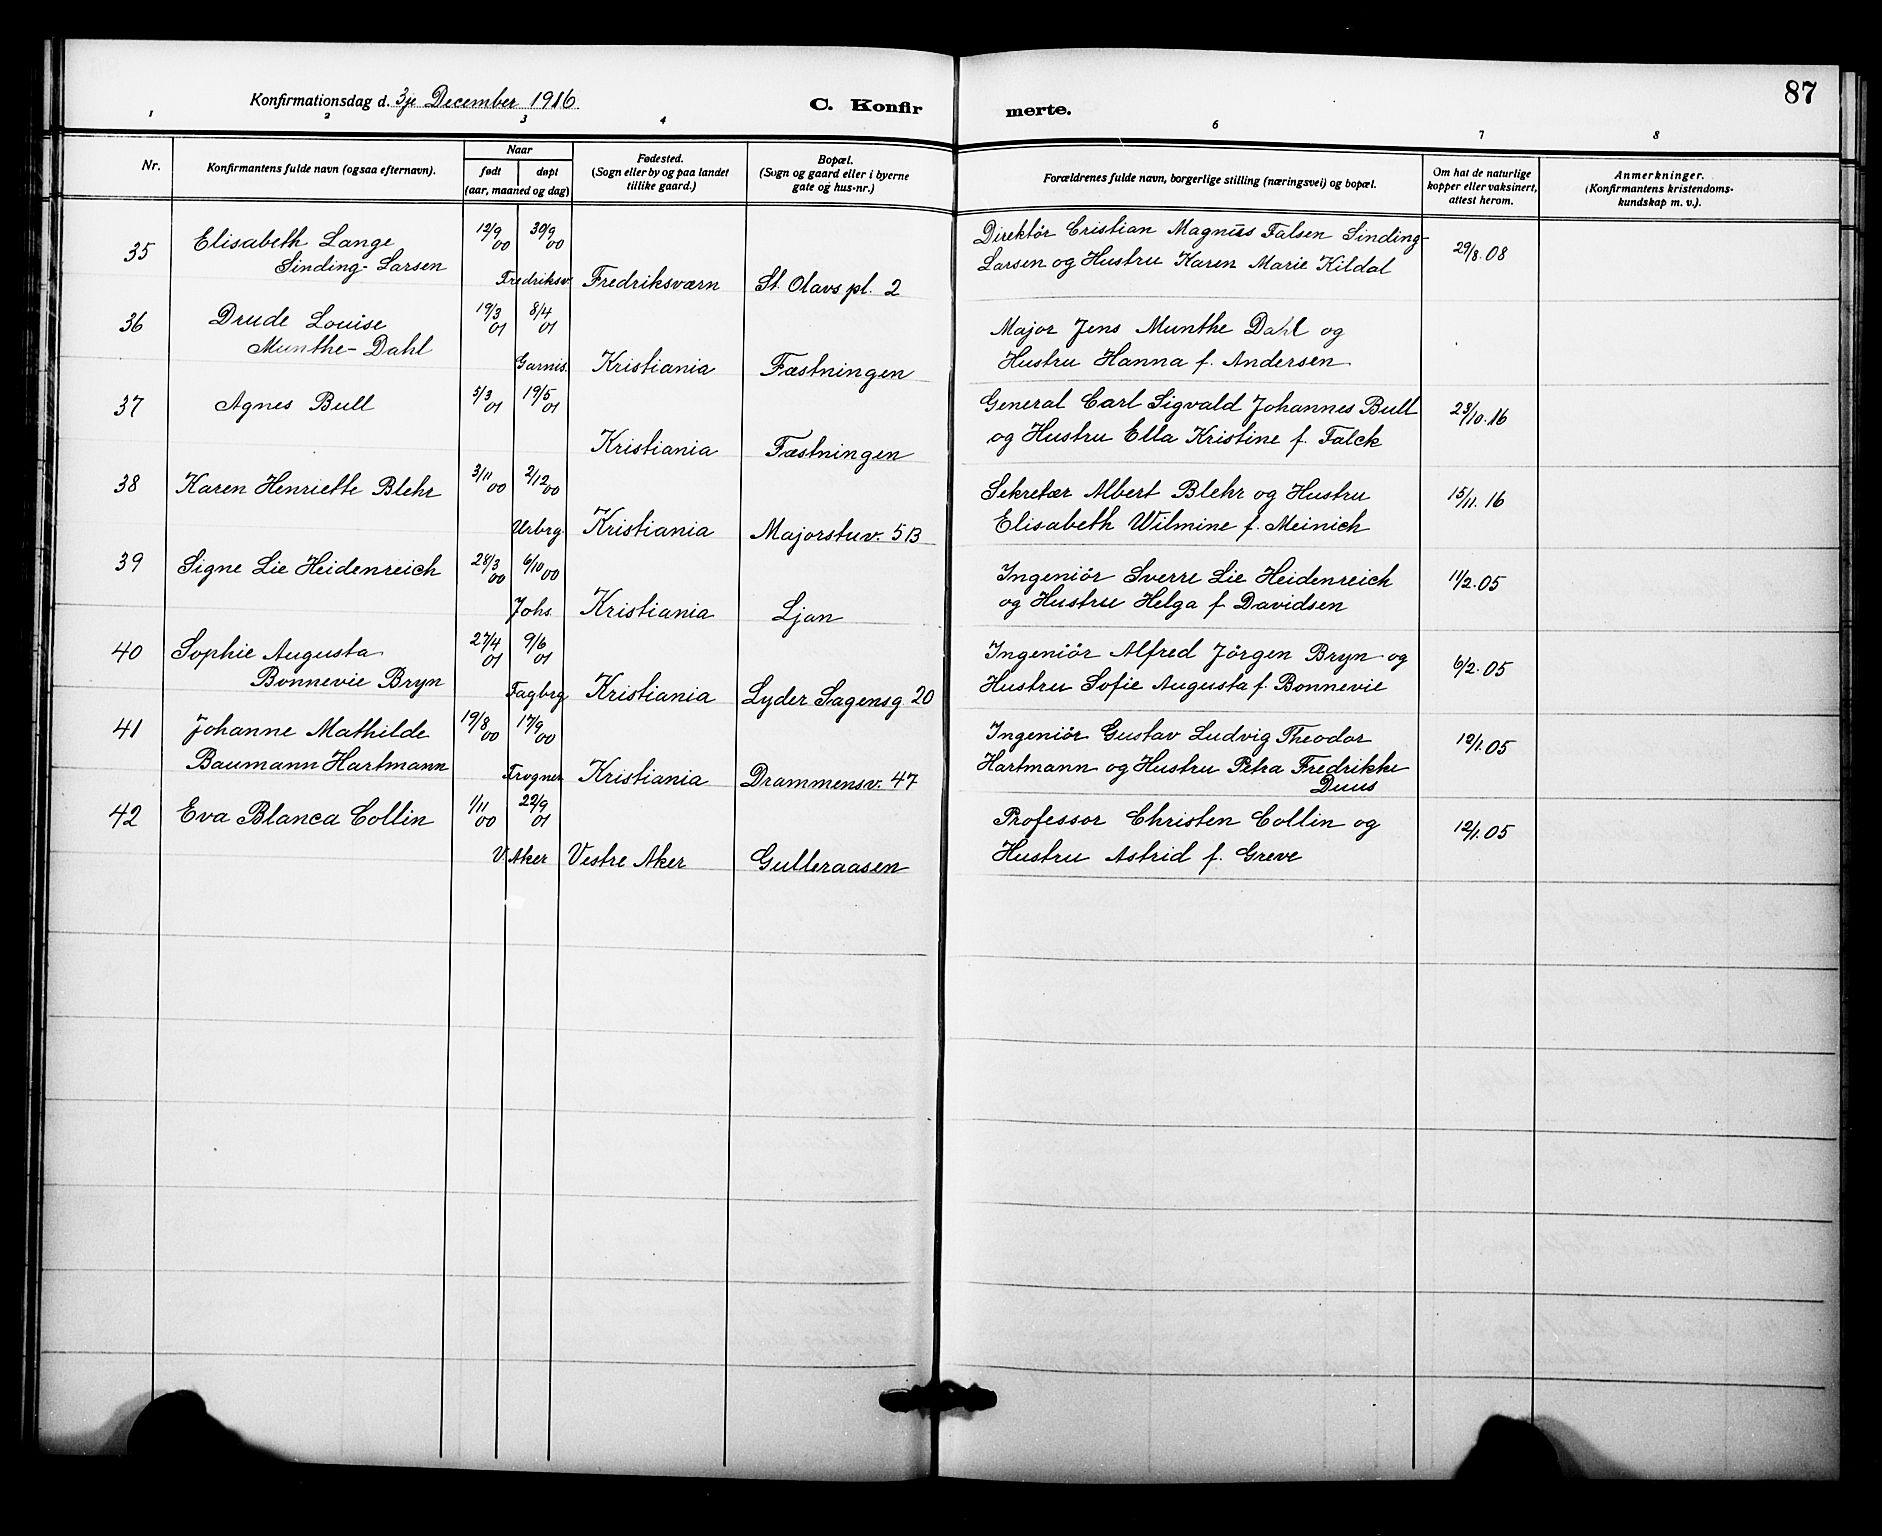 87
Konfirmationsdag d. 3je December 1916
C. Konfir merte.
1 2 3 4 6 7 8
Nr.
Konfirmantens fulde navn (ogsaa efternavn).
Naar
født døpt
(aar, maaned og dag)
Fødested.
(Sogn eller by og paa landet
tillike gaard.)
Bopæl.
(Sogn og gaard eller i byerne
gate og hus-nr.)
Forældrenes fulde navn, borgerlige stilling (næringsvei) og bopæl.
Om hat de naturlige
kopper eller vaksinert,
attest herom.
Anmerkninger.
(Konfirmantens kristendoms-
kundskap m. v.).
35 Elisabeth Lange 12/9 00 30/9 00 Direktör Cristian Magnus Falsen Sinding- 29/8. 08
Sinding-Larsen Fredriksv. Fredriksværn St. Olavs pl. 2 Larsen og Hustru Karen Marie Kildal
36 Drude Louise 19/3 01 8/4 01 Major Jens Munthe Dahl og
Munthe-Dahl Garnis. Kristiania Fæstningen Hustru Hanna f. Andersen
37 Agnes Bull 5/3 01 19/5 01 General Carl Sigvald Johannes Bull 23/10. 16
Kristiania Fæstningen og Hustru Ella Kristine f. Falck
38 Karen Henriette Blehr 3/11 00 2/12 00 Sekretær Albert Blehr og Hustru 15/11. 16
Urbrg. Kristiania Majorstuv. 5B Elisabeth Wilmine f. Meinich
39 Signe Lie Heidenreich 28/3 00 6/10 00 Ingeniör Sverre Lie Heidenreich 11/2. 05
Johs. Kristiania Ljan og Hustru Helga f. Davidsen
40 Sophie Augusta 27/4 01 9/6 01 Ingeniör Alfred Jörgen Bryn og 6/2. 05
Bonnevie Bryn Fagbrg Kristiania Lyder Sagensg 20 Hustru Sofie Augusta f. Bonnevie
41 Johanne Mathilde 19/8 00 17/9 00 Ingeniör Gustav Ludvig Theodor 12/1. 05
Baumann Hartmann Frogner Kristiania Drammensv. 47 Hartmann og Hustru Petra Fredrikke
Duus
42 Eva Blanca Collin 1/11 00 22/9 01 Professor Christen Collin og 12/1. 05
V. Aker Vestre Aker Gulleraasen Hustru Astrid f. Greve